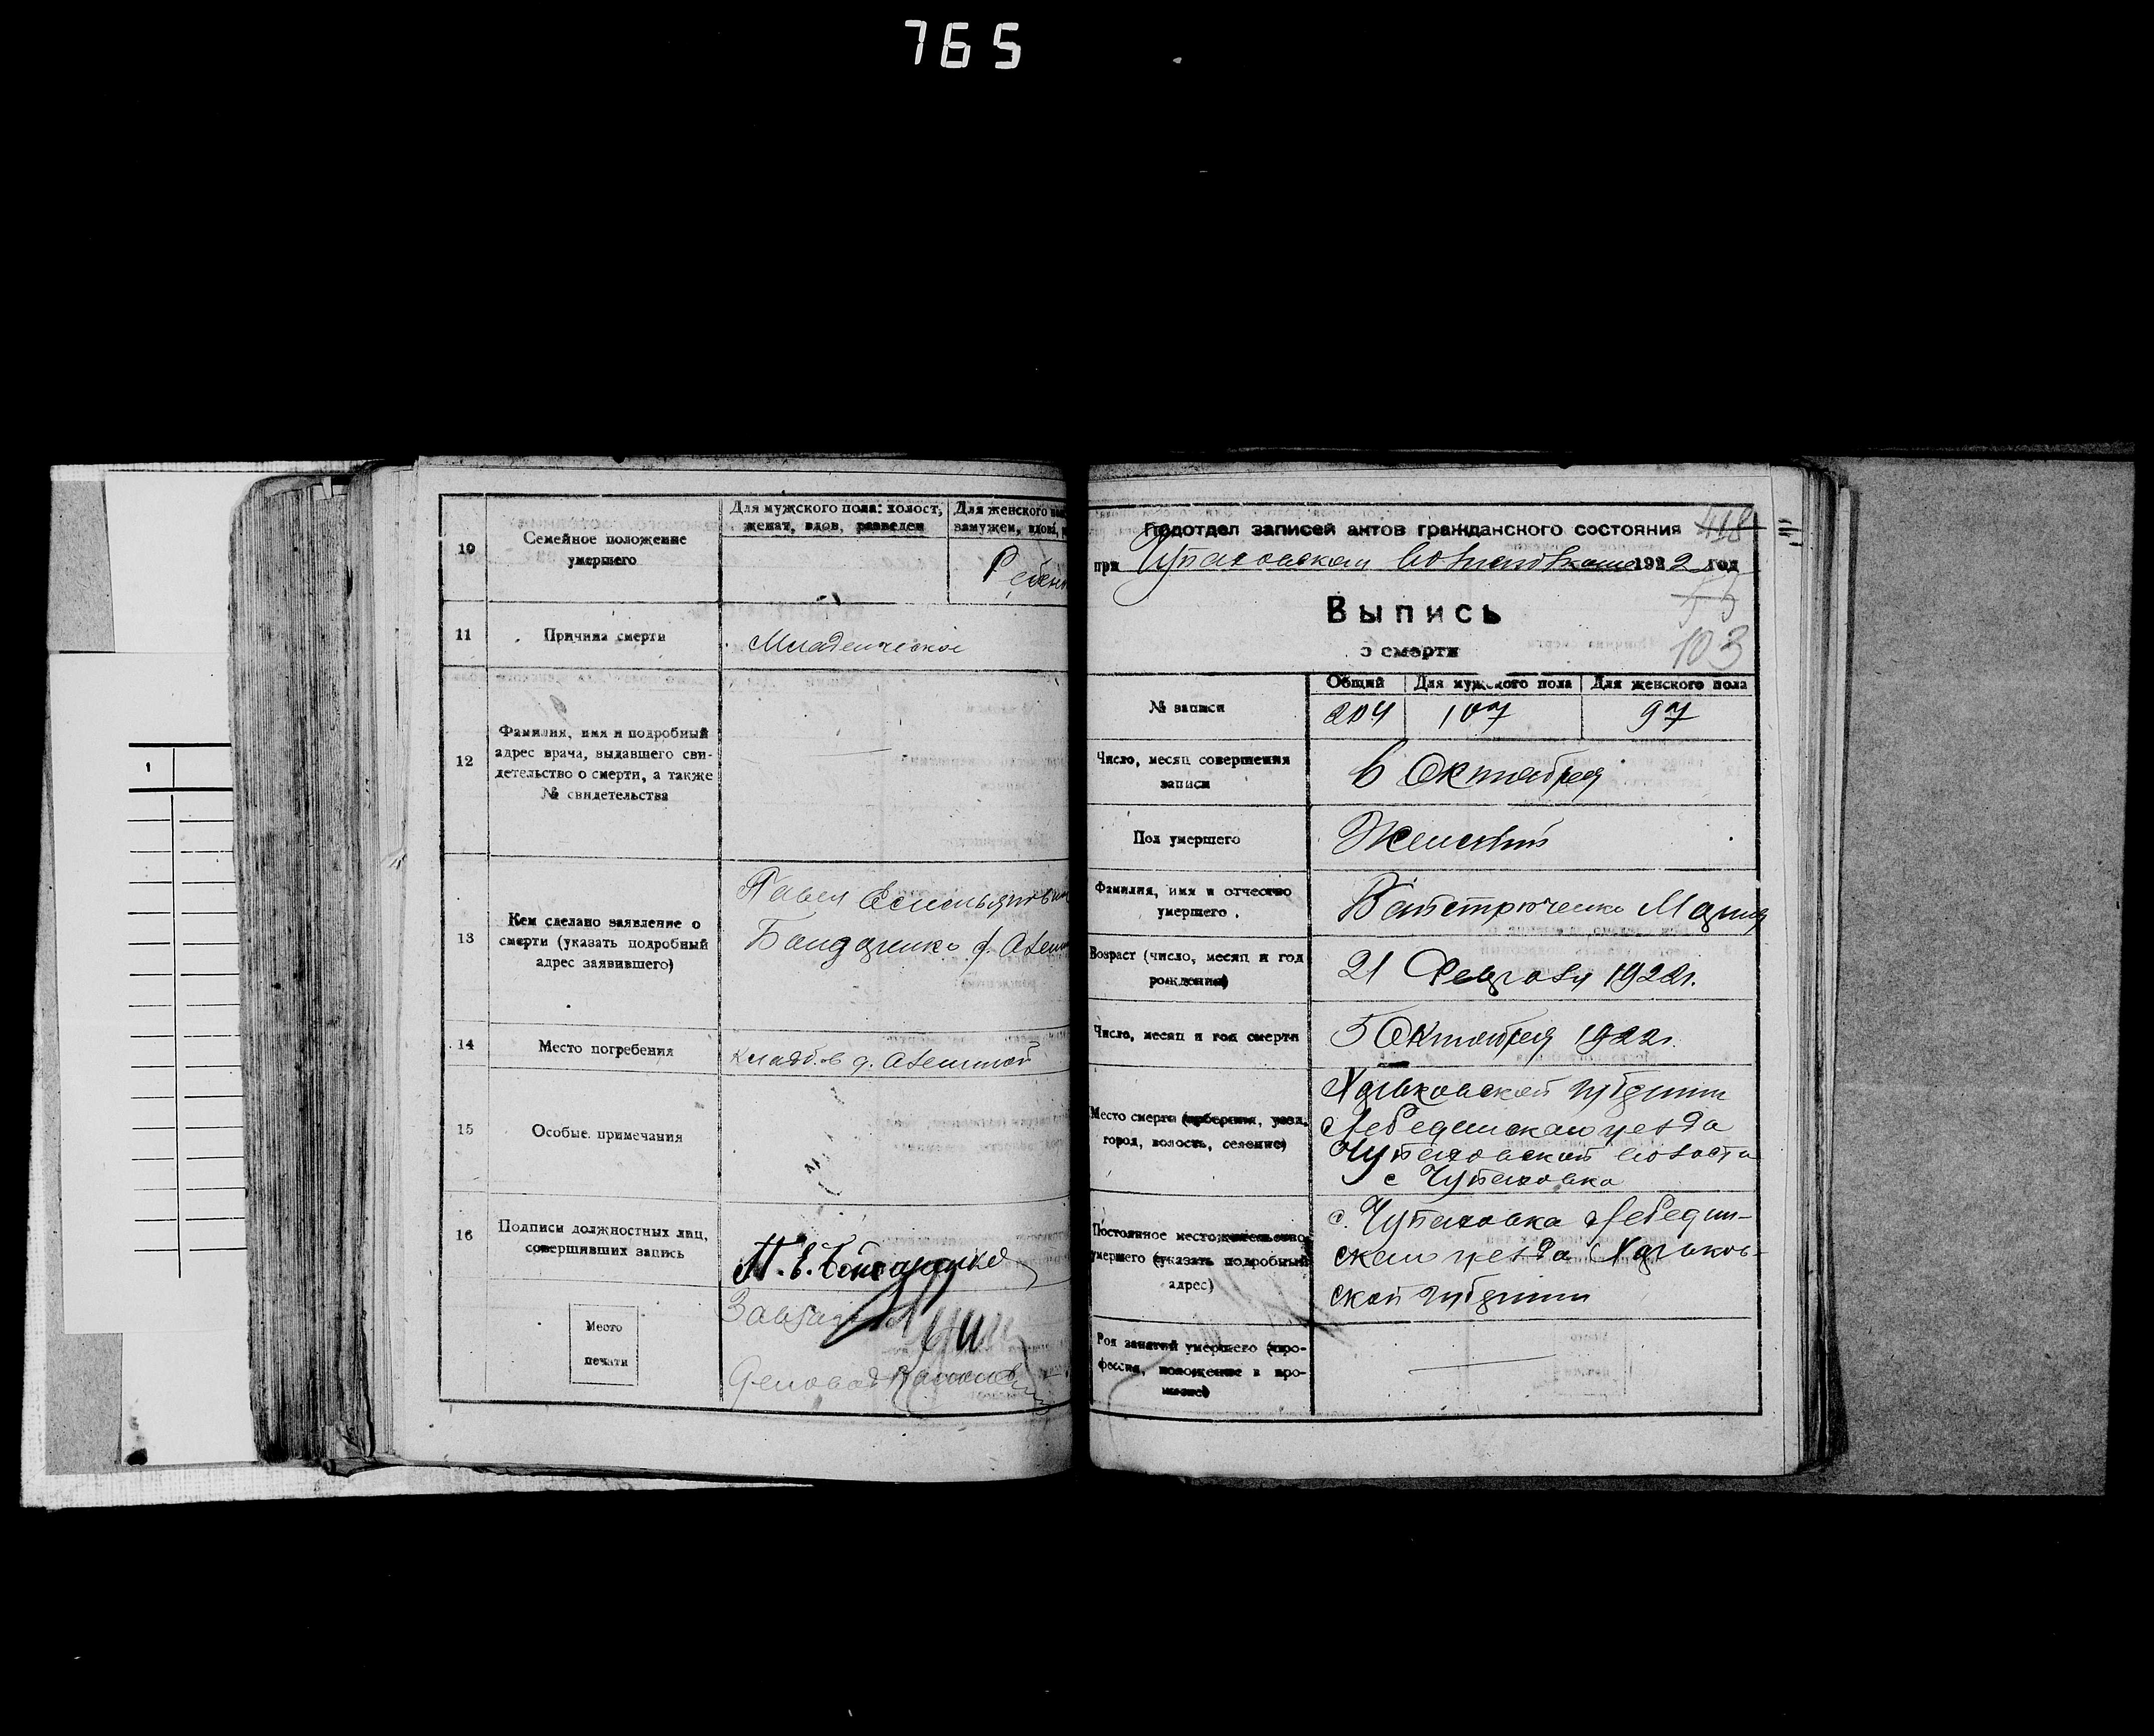 765
10
Семейное положение
умершего
Для мужского пола: холост,
женат, вдов, разведен
Для женского
замужем, вдова,
11
Причина смерти
Младенческое
12
Фамилия, имя и подробный
адрес врача, выдавшего сви-
детельство о смерти, а также
№ свидетельства
13
Кем сделано заявление о
смерти (указать подробный
адрес заявившего)
Павел
14
Место погребения
кладб. в д.
15
Особые примечания
16
Подписи должностных лиц,
совершивших запись
Место
печати
Подотдел записей актов гражданского состояния
418
при Чупаховском 1922 год
Выпись
о смерти
103
№ записи
Общий
Для мужского пола
Для женского пола
204
107
97
Число, месяц совершения
записи
6 Октября
Пол умершего
Женский
Фамилия, имя и отчество
умершего
Мария
Возраст (число, месяц и год
рождения)
21 Февраля 1922 г.
Число, месяц и год смерти
5 Октября 1922 г.
Место смерти (губерния, уезд,
город, волость, селение)
Харьковской губернии
Лебединского уезда
Чупаховской волости
с Чупаховка
Постоянное местожительство
умершего (указать подробный
адрес)
с. Чупаховка Лебедин-
ского уезда Харьков-
ской губернии
Род занятий умершего (про-
фессия, положение в про-
мысле)